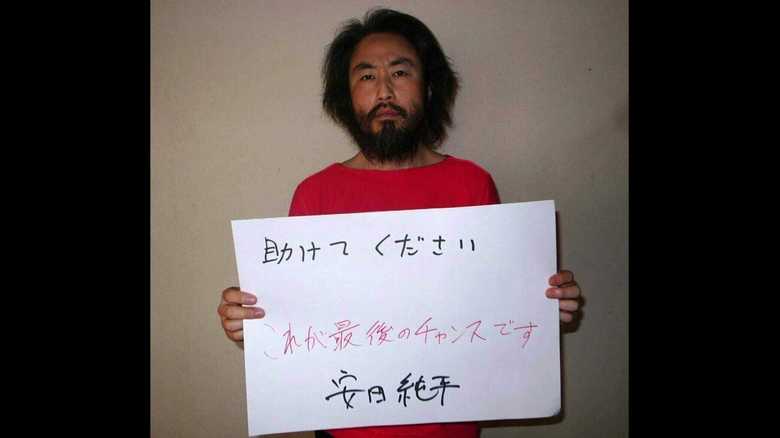 助けてください
これが最後のチャンスです
安田純平